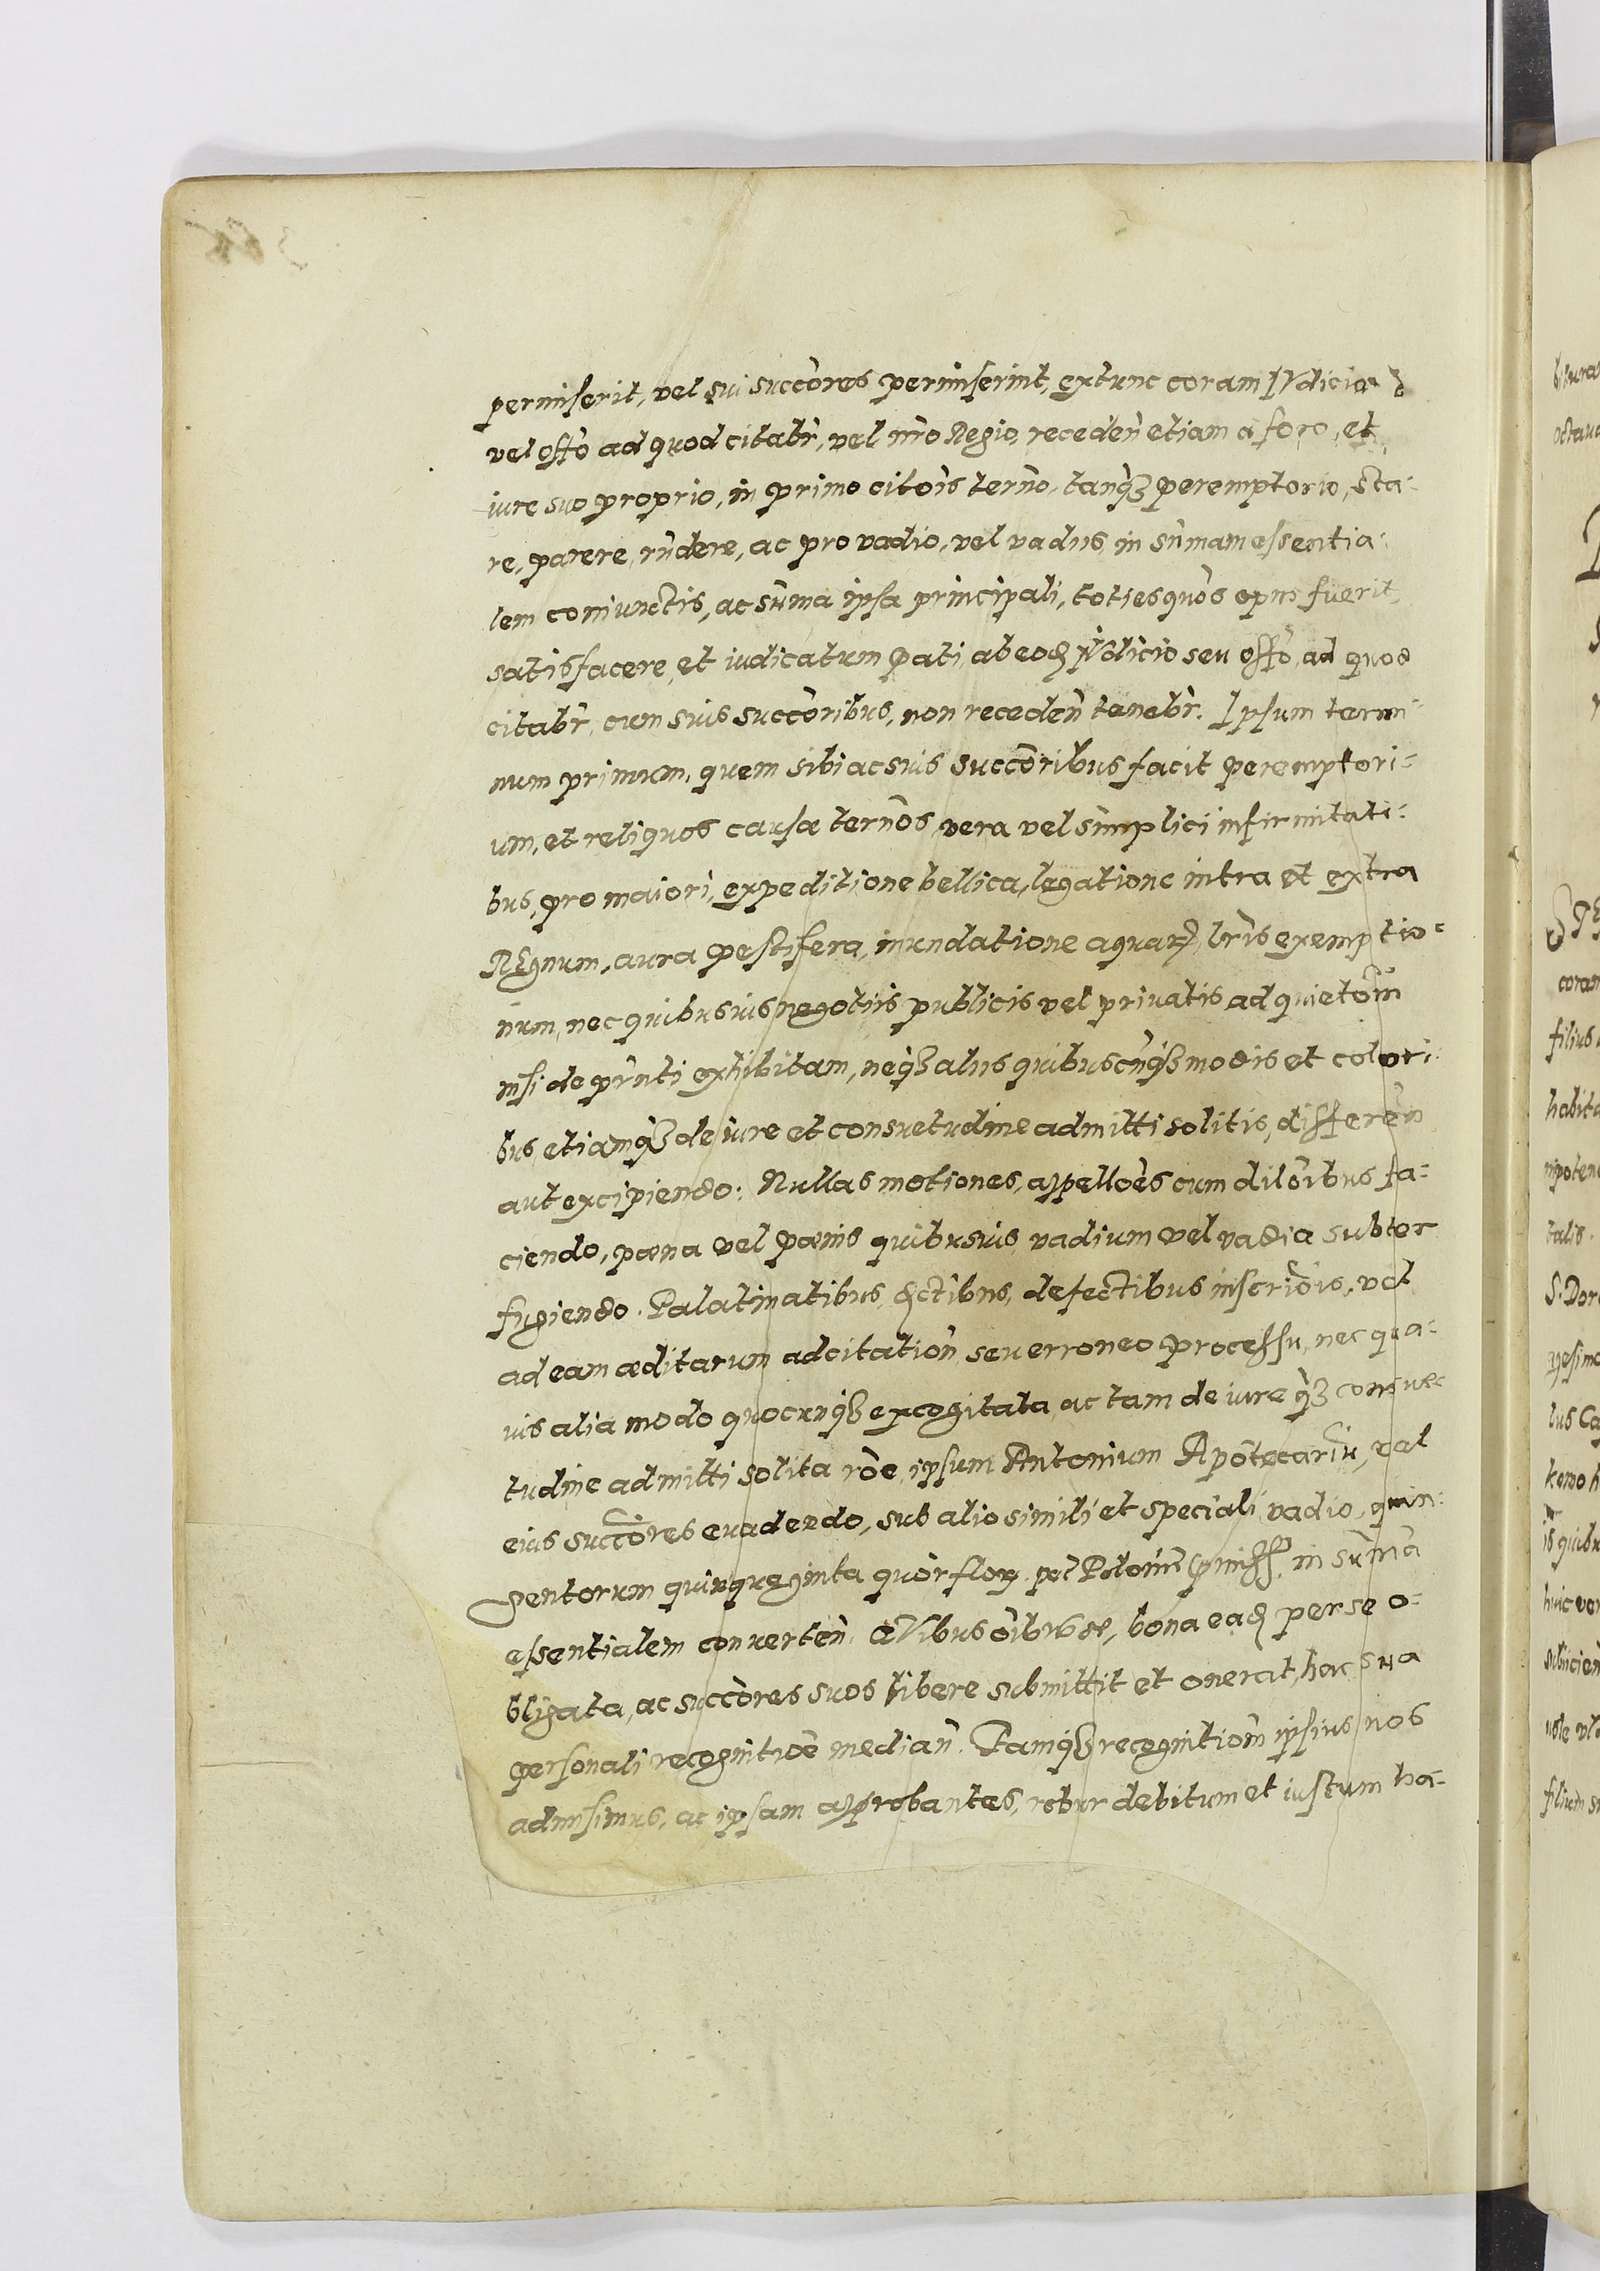 permiserit, vel sui succores permiserint, extunc coram Judicio
vel offo ad quod citabr, vel nro Regio, receden etiam a foro, et
iure suo proprio, in primo citois terno, tanq3 peremptorio, sta-
re, parere, rndere, ac pro vadio, vel vadiis in sumam essentia-
lem coniunctis, ac suma ipsa principali, toties quos opus fuerit,
satisfacere, et iudicatum pati, ab eod Judicio seu offo, ad quod
citabr, cum suis succoribus, non receden tenebr. Ipsum termi-
num primum, quem sibi ac suis succoribus facit peremptori-
um, et reliquos causæ ternos, vera vel simplici infirmitati-
bus, pro maiori, expeditione bellica, legatione intra et extra
REgnum, aura pestifera, inundatione aquar, lris exemptio-
num, nec quibusuis negotiis publicis vel priuatis ad quietom
nisi de pnti exhibitam, neq3 aliis quibuscnq3 modis et colori-
bus, etiamq3 de iure et consuetudine admitti solitis, differen
aut excipiendo: Nullas motiones, appelloes cum diloibus fa-
ciendo, pæna vel pænis quibusuis, vadium vel vadia subter
fugiendo. Palatinatibus, dctibus, defectibus inscriois, vel
ad eam æditarum adcitation, seu erroneo processu, nec qua-
uis alia modo quocunq3 excogitata, ac tam de iure q3 consue-
tudine admitti solita roe, ipsum Antonium Apotecariu, vel
eius succores euadendo, sub alio simili et speciali vadio, quin-
gentorum quinquaginta quor flor. in suma
essentialem conuerten. bona ead per se o-
bligata, ac succores suos libere submittit et onerat, hac sua
personali recognitioe median. Tamq3 recognitiom ipsius nos
admisimus, ac ipsam approbantes, robur debitum et iustum ha-